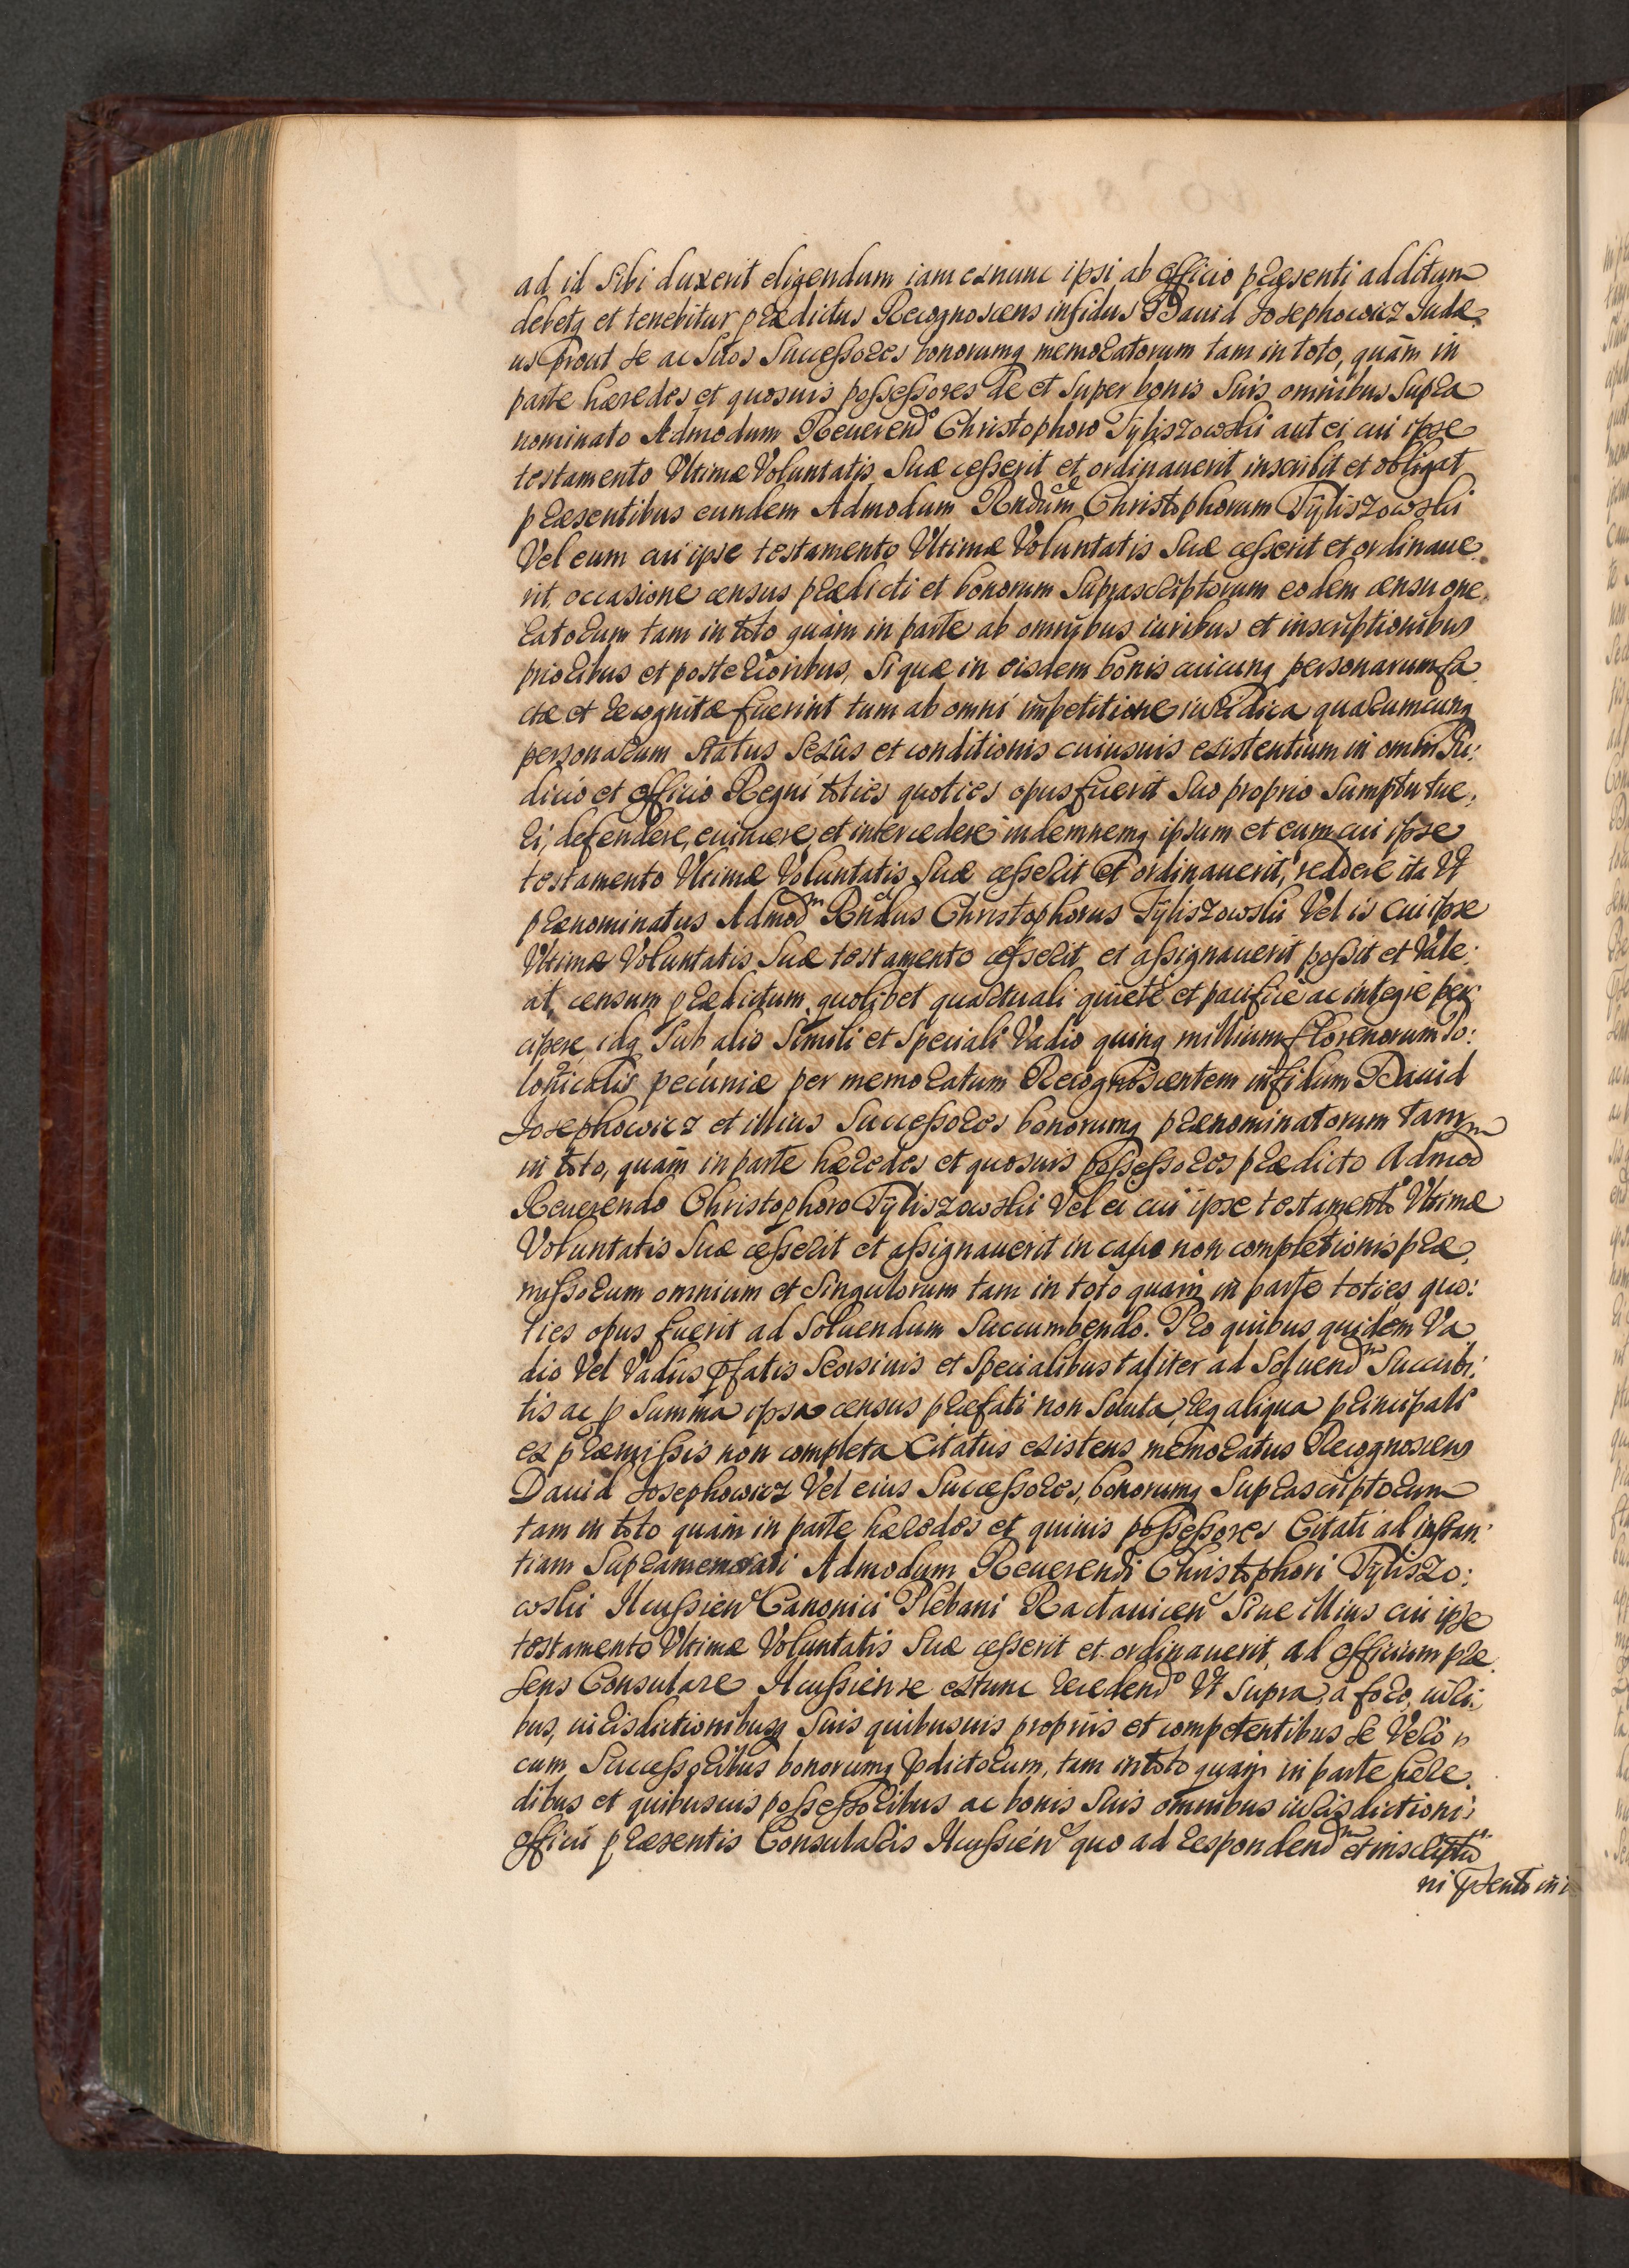 ad id Sibi duxerit eligendum iam exnunc ipsi ab officio præsenti additum
debetq et tenebitur prædictus Recognoscens infidus Dauid Josephowicz Judæ
us Prout se ac Suos Successores bonorumq memoratorum tam in toto, quàm in
parte hæredes et quosuis possessores de et Super bonis Suis omnibus Supra
nominato Admodum Reuerend⁰ Christophoro Tyliszowski aut ei cui ipse
testamento Vltimæ Voluntatis Suæ cesserit et ordinauerit inscribit et obligat
præsentibus eundem Admodum Rndum Christophorum Tyliszowski
Vel eum cui ipse testamento Vltimæ Voluntatis Suæ cesserit et ordinaue
rit, occasione census prædicti et bonorum Suprascriptorum eodem censu one
ratorum tam in toto quàm in parte ab omnibus iuribus et inscriptionibus
prioribus et posterioribus, Si quæ in eisdem bonis cuicunq personarum fa
ctæ et recognitæ fuerint tum ab omni impetitione iuridica quarumcunq
personarum Status Sexûs et conditionis cuiusuis existentium in omni Ju:
dicio et officio Regni toties quoties opus fuerit Suo proprio Sumptu tue,
ri, defendere, euincere, et intercedere indemnemq ipsum et eum cui ipse
testamento Vltimæ Voluntatis Suæ cesserit et ordinauerit, reddere ita Vt
prænominatus Admodm Rndus Christophorus Tyliszowski Vel is cui ipse
Vltimæ Voluntatis Suæ testamento cesserit et assignauerit possit et Vale:
at, censum prædictum quolibet quartuali quietè et pacificè ac integrè per
cipere, idq Sub alio Simili et Speciali Vadio quinq millium florenorum Po:
lonicalis pecuniæ per memoratum Recognoscentem infidum Dauid
Josephowicz et illius Successores bonorumq prænominatorum tam
in toto, quàm in parte hæredes et quosuis possessores prædicto Admodm
Reuerendo Christophoro Tyliszowski Vel ei cui ipse testamento Vltimæ
Voluntatis Suæ cesserit et assignauerit in casu non completionis præ,
missorum omnium et Singulorum tam in toto quàm in parte toties quo:
ties opus fuerit ad Soluendum Succumbendo. Pro quibus quidem Va
dio Vel Vadiis pfatis Seorsiuis et Specialibus taliter ad Soluendm Succubi:
tis ac p Summa ipsa census præfati non Soluta, req aliqua principali
ex præmissis non completa Citatus existens memoratus Recognoscens
Dauid Josephowicz Vel eius Successores, bonorumq Suprascriptorum
tam in toto quàm in parte hæredes et quiuis possessores Citati ad instan:
tiam Supramemorati Admodum Reuerendi Christophori Tyliszo:
wski Ilcussien Canonici Plebani Ractauicen Siue illius cui ipse
testamento Vltimæ Voluntatis Suæ cesserit et ordinauerit, ad officium præ
sens Consulare Ilcussiense extunc recedend⁰ Vt Supra, à foro, iuri:
bus, iurisdictionibusq Suis quibusuis propriis et competentibus Se Verò
cum Successoribus bonorumq pdictorum, tam in toto quàm in parte hære.
dibus et quibusuis possessoribus ac bonis Suis omnibus iurisdictioni
officii præsentis Consularis Ilcussien quo ad respondendm et inscriptio
ni psenti